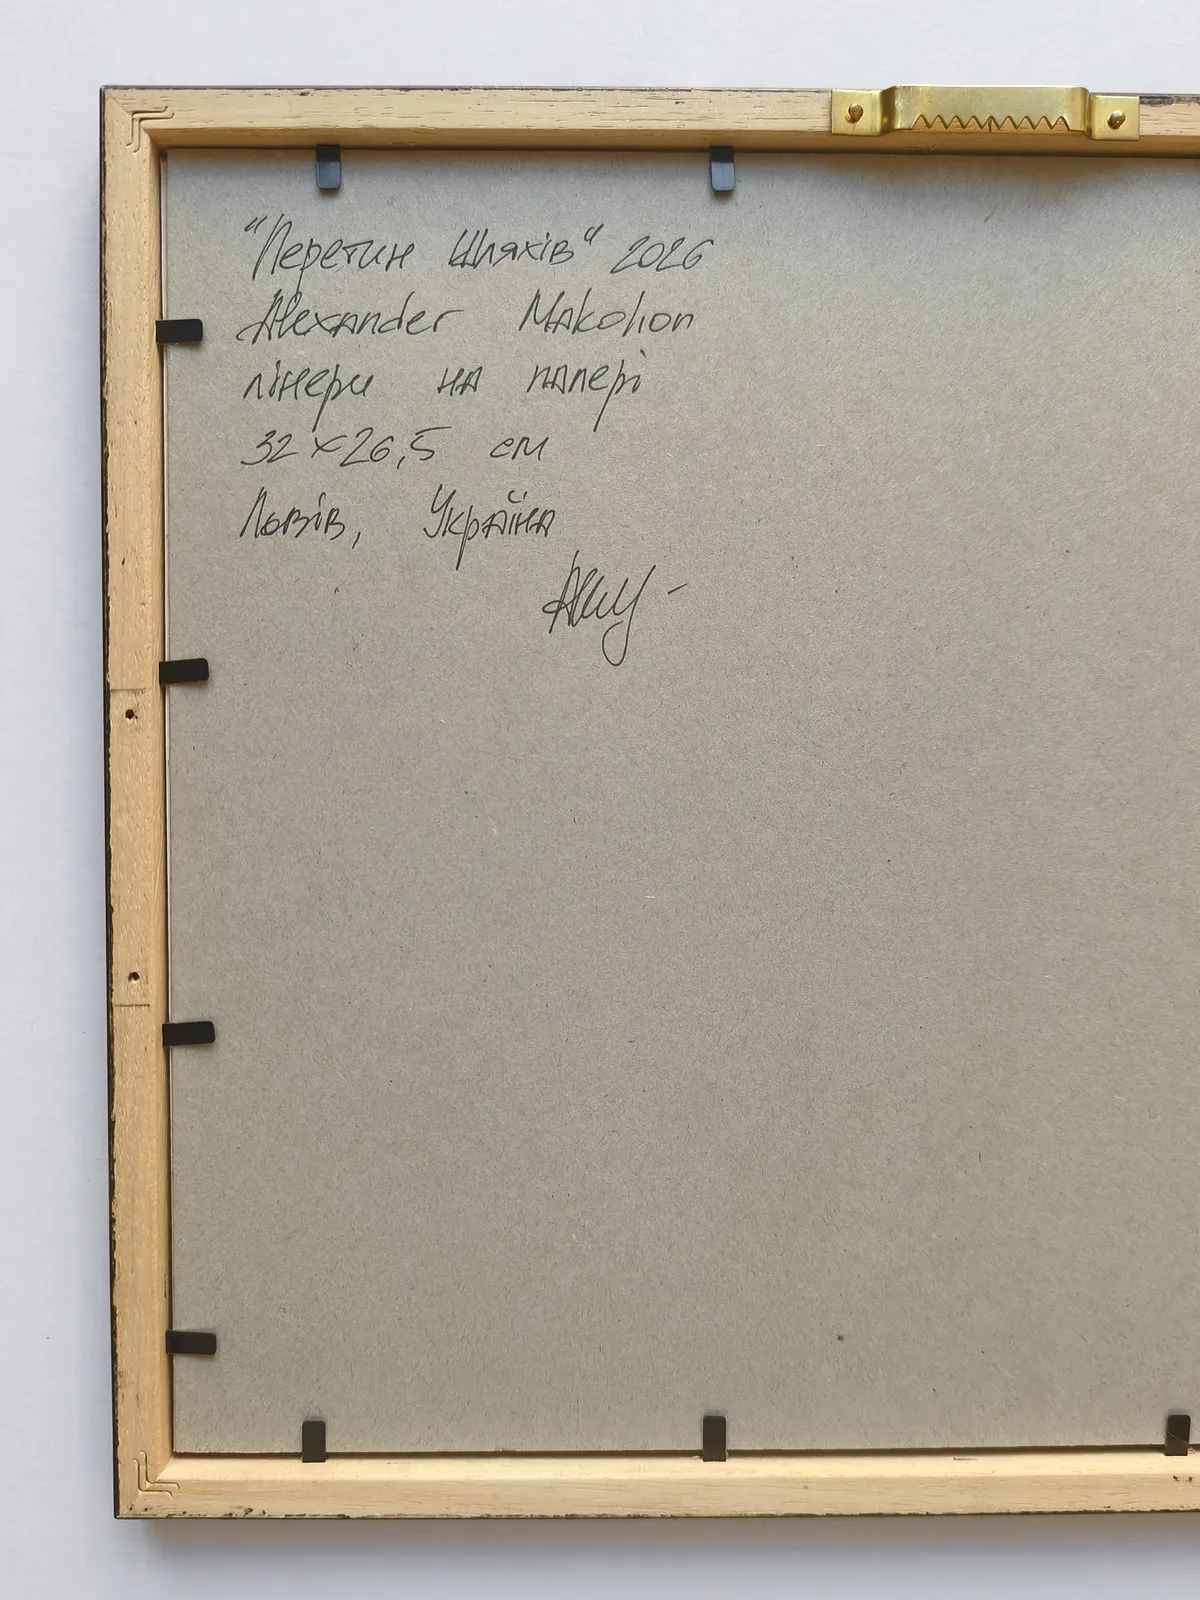 "Перетин Шляхів" 2026
Alexander Makohon
лінери на папері
32×26,5 см
Львів, Україна